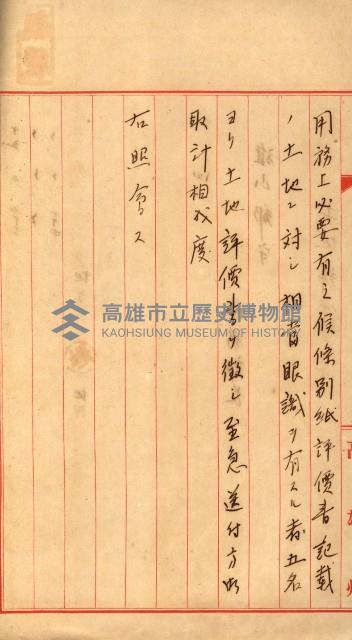 用務上必要有之候條別紙評價書記載
ノ土地ニ対シ相当眼識ヲ有スル者五名
ヨリ土地評價書ヲ徴シ至急送付方御
取計相成度
右照會ス
高雄州
高雄市立歷史博物館
KAOHSIUNG MUSEUM OF HISTORY